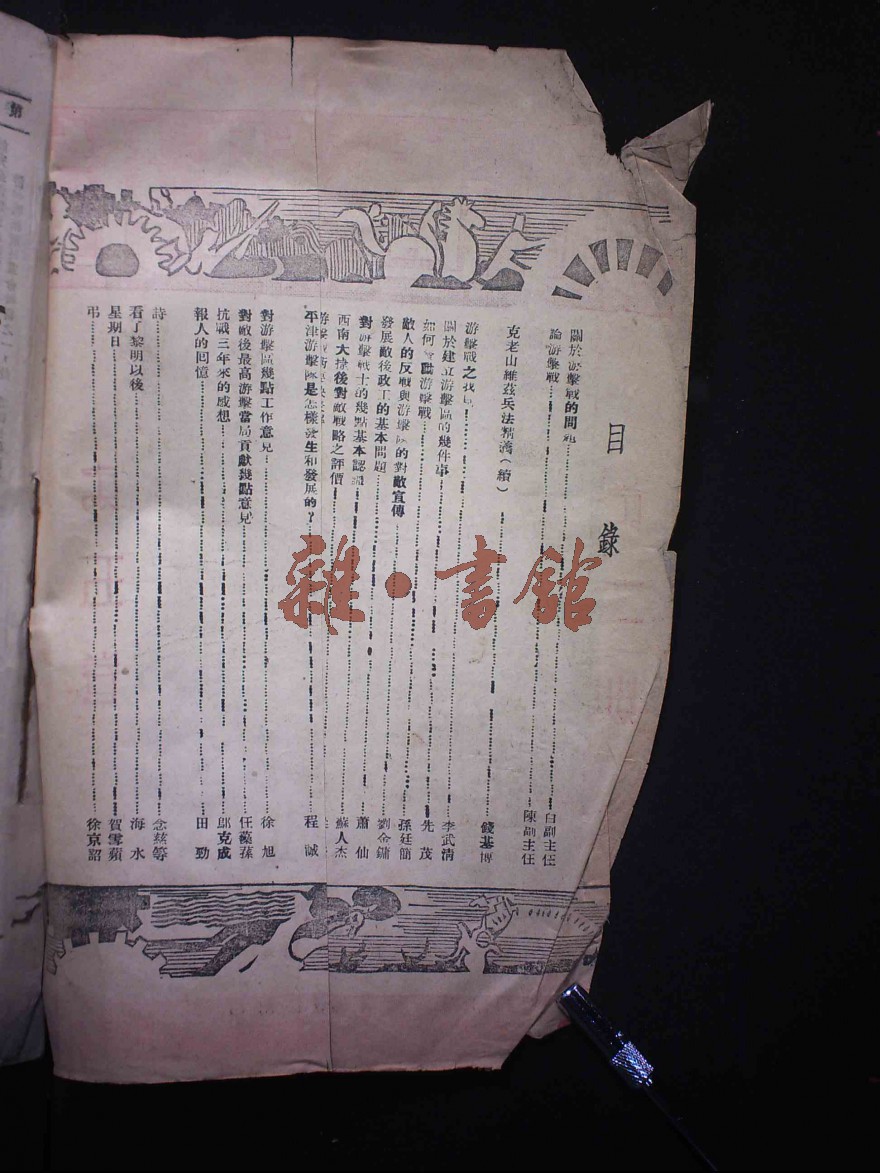 目錄
關於游擊戰的問題……白副主任
論游擊戰……陳副主任
克老山維茲兵法精義(續)……錢基博
游擊戰之我見……
關於建立游擊區的幾件事……李武清
如何發動游擊戰……先茂
敵人的反戰與游擊隊的對敵宣傳……孫廷簡
發展敵後政工的基本問題……劉金鏞
對游擊戰士的幾點基本認識……蕭仙
西南大捷後對敵戰略之評價……蘇人杰
平津游擊隊是怎樣發生和發展的?……程誠
對游擊區幾點工作意見……徐旭
對敵後最高游擊當局貢獻幾點意見……任藝蓀
抗戰三年來的感想……鄺克成
報人的回憶……田勁
詩……念慈等
看了黎明以後……海水
星期日……賀雪蘋
弔……徐京詔
雜·書館
第